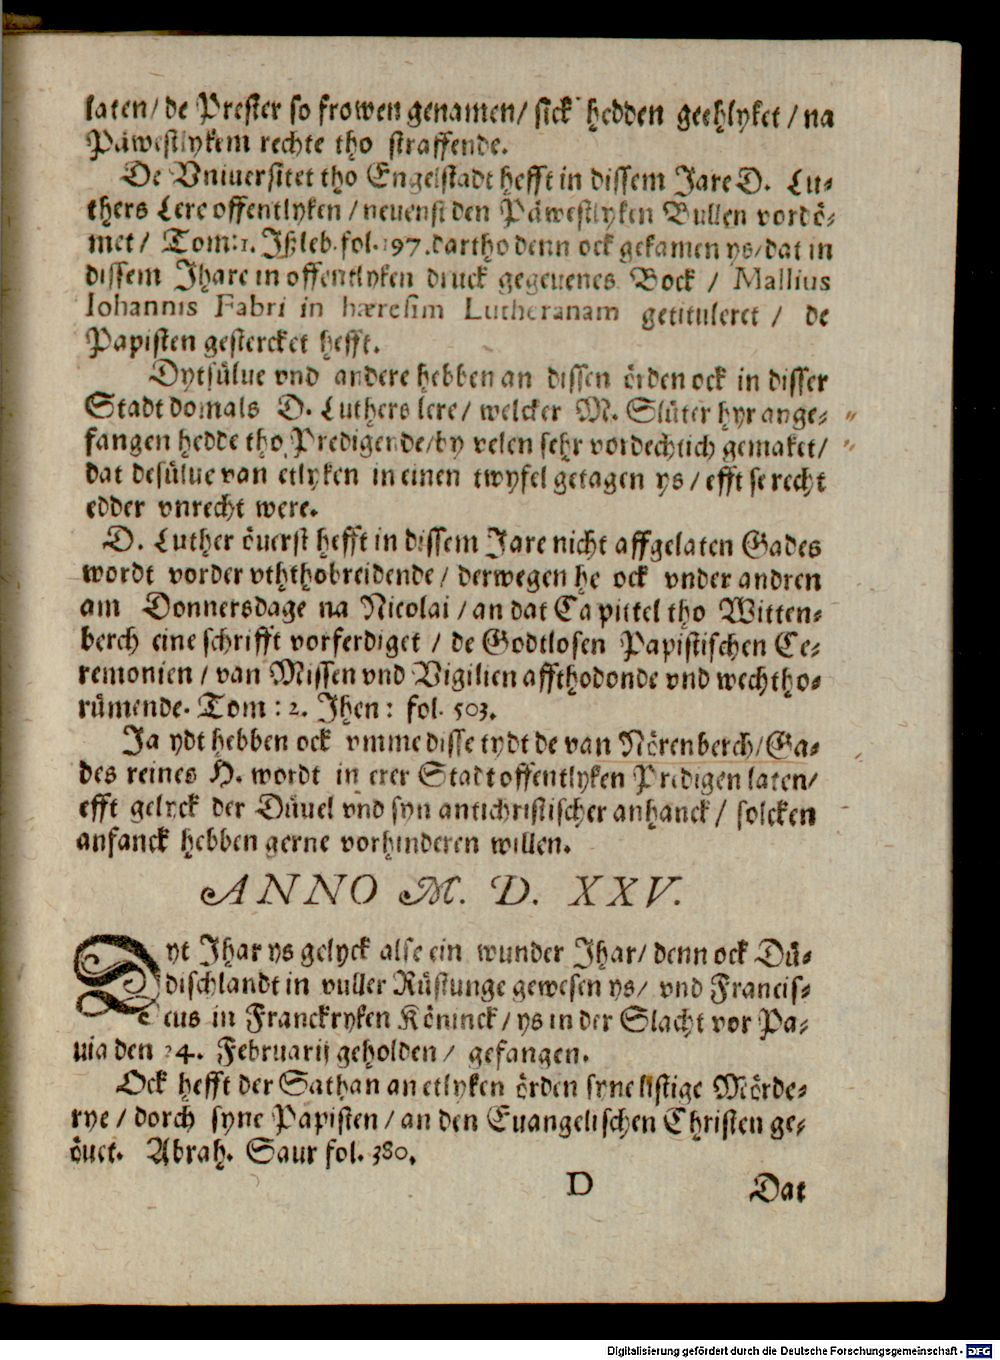 laten/ de Prester so frowen genamen/ sick hedden geehlyket / na
Päwestlykem rechte tho straffende.
De Vniuersitet tho Engelstadt hefft in dissem Jare D. Lu-
thers Lere offentlyken / neuenst den Päwestlyken Bullen vordö-
met / Tom: 1. Jßleb. fol. 197. dartho denn ock gekamen ys/ dat in
dissem Jhare in offentlyken druck gegeuenes Bock / Mallius
Iohannis Fabri in hæresim Lutheranam getituleret / de
Papisten gestercket hefft.
Dytsülue vnd andere hebben an dissen örden ock in disser
Stadt domals D. Luthers lere/ welcker M. Slüter hyr ange-
fangen hedde tho Predigende/ by velen sehr vordechtich gemaket/
dat desülue van etlyken in einen twyfel getagen ys / efft se recht
edder vnrecht were.
D. Luther öuerst hefft in dissem Jare nicht affgelaten Gades
wordt vorder vththobreidende / derwegen he ock vnder andren
am Donnersdage na Nicolai / an dat Capittel tho Witten-
berch eine schrifft vorferdiget / de Godtlosen Papistischen Ce-
remonien / van Missen vnd Vigilien affthodonde vnd wechtho-
rümende. Tom : 2. Jhen : fol. 503.
Ja ydt hebben ock vmme disse tydt de van Nörenberch/ Ga-
des reines H. wordt in erer Stadt offentlyken Predigen laten/
efft gelyck der Düuel vnd syn antichristischer anhanck / solcken
anfanck hebben gerne vorhinderen willen.
ANNO M. D. XXV.
Dyt Jhar ys gelyck alse ein wunder Jhar/ denn ock Dü-
dischlandt in vuller Rüstunge gewesen ys/ vnd Francis-
cus in Franckryken Köninck / ys in der Slacht vor Pa-
uia den 24. Februarij geholden / gefangen.
Ock hefft der Sathan an etlyken örden syne listige Mörde-
rye / dorch syne Papisten / an den Euangelischen Christen ge-
öuet. Abrah. Saur fol. 380.
D Dat
Digitalisierung gefördert durch die Deutsche Forschungsgemeinschaft - DFG